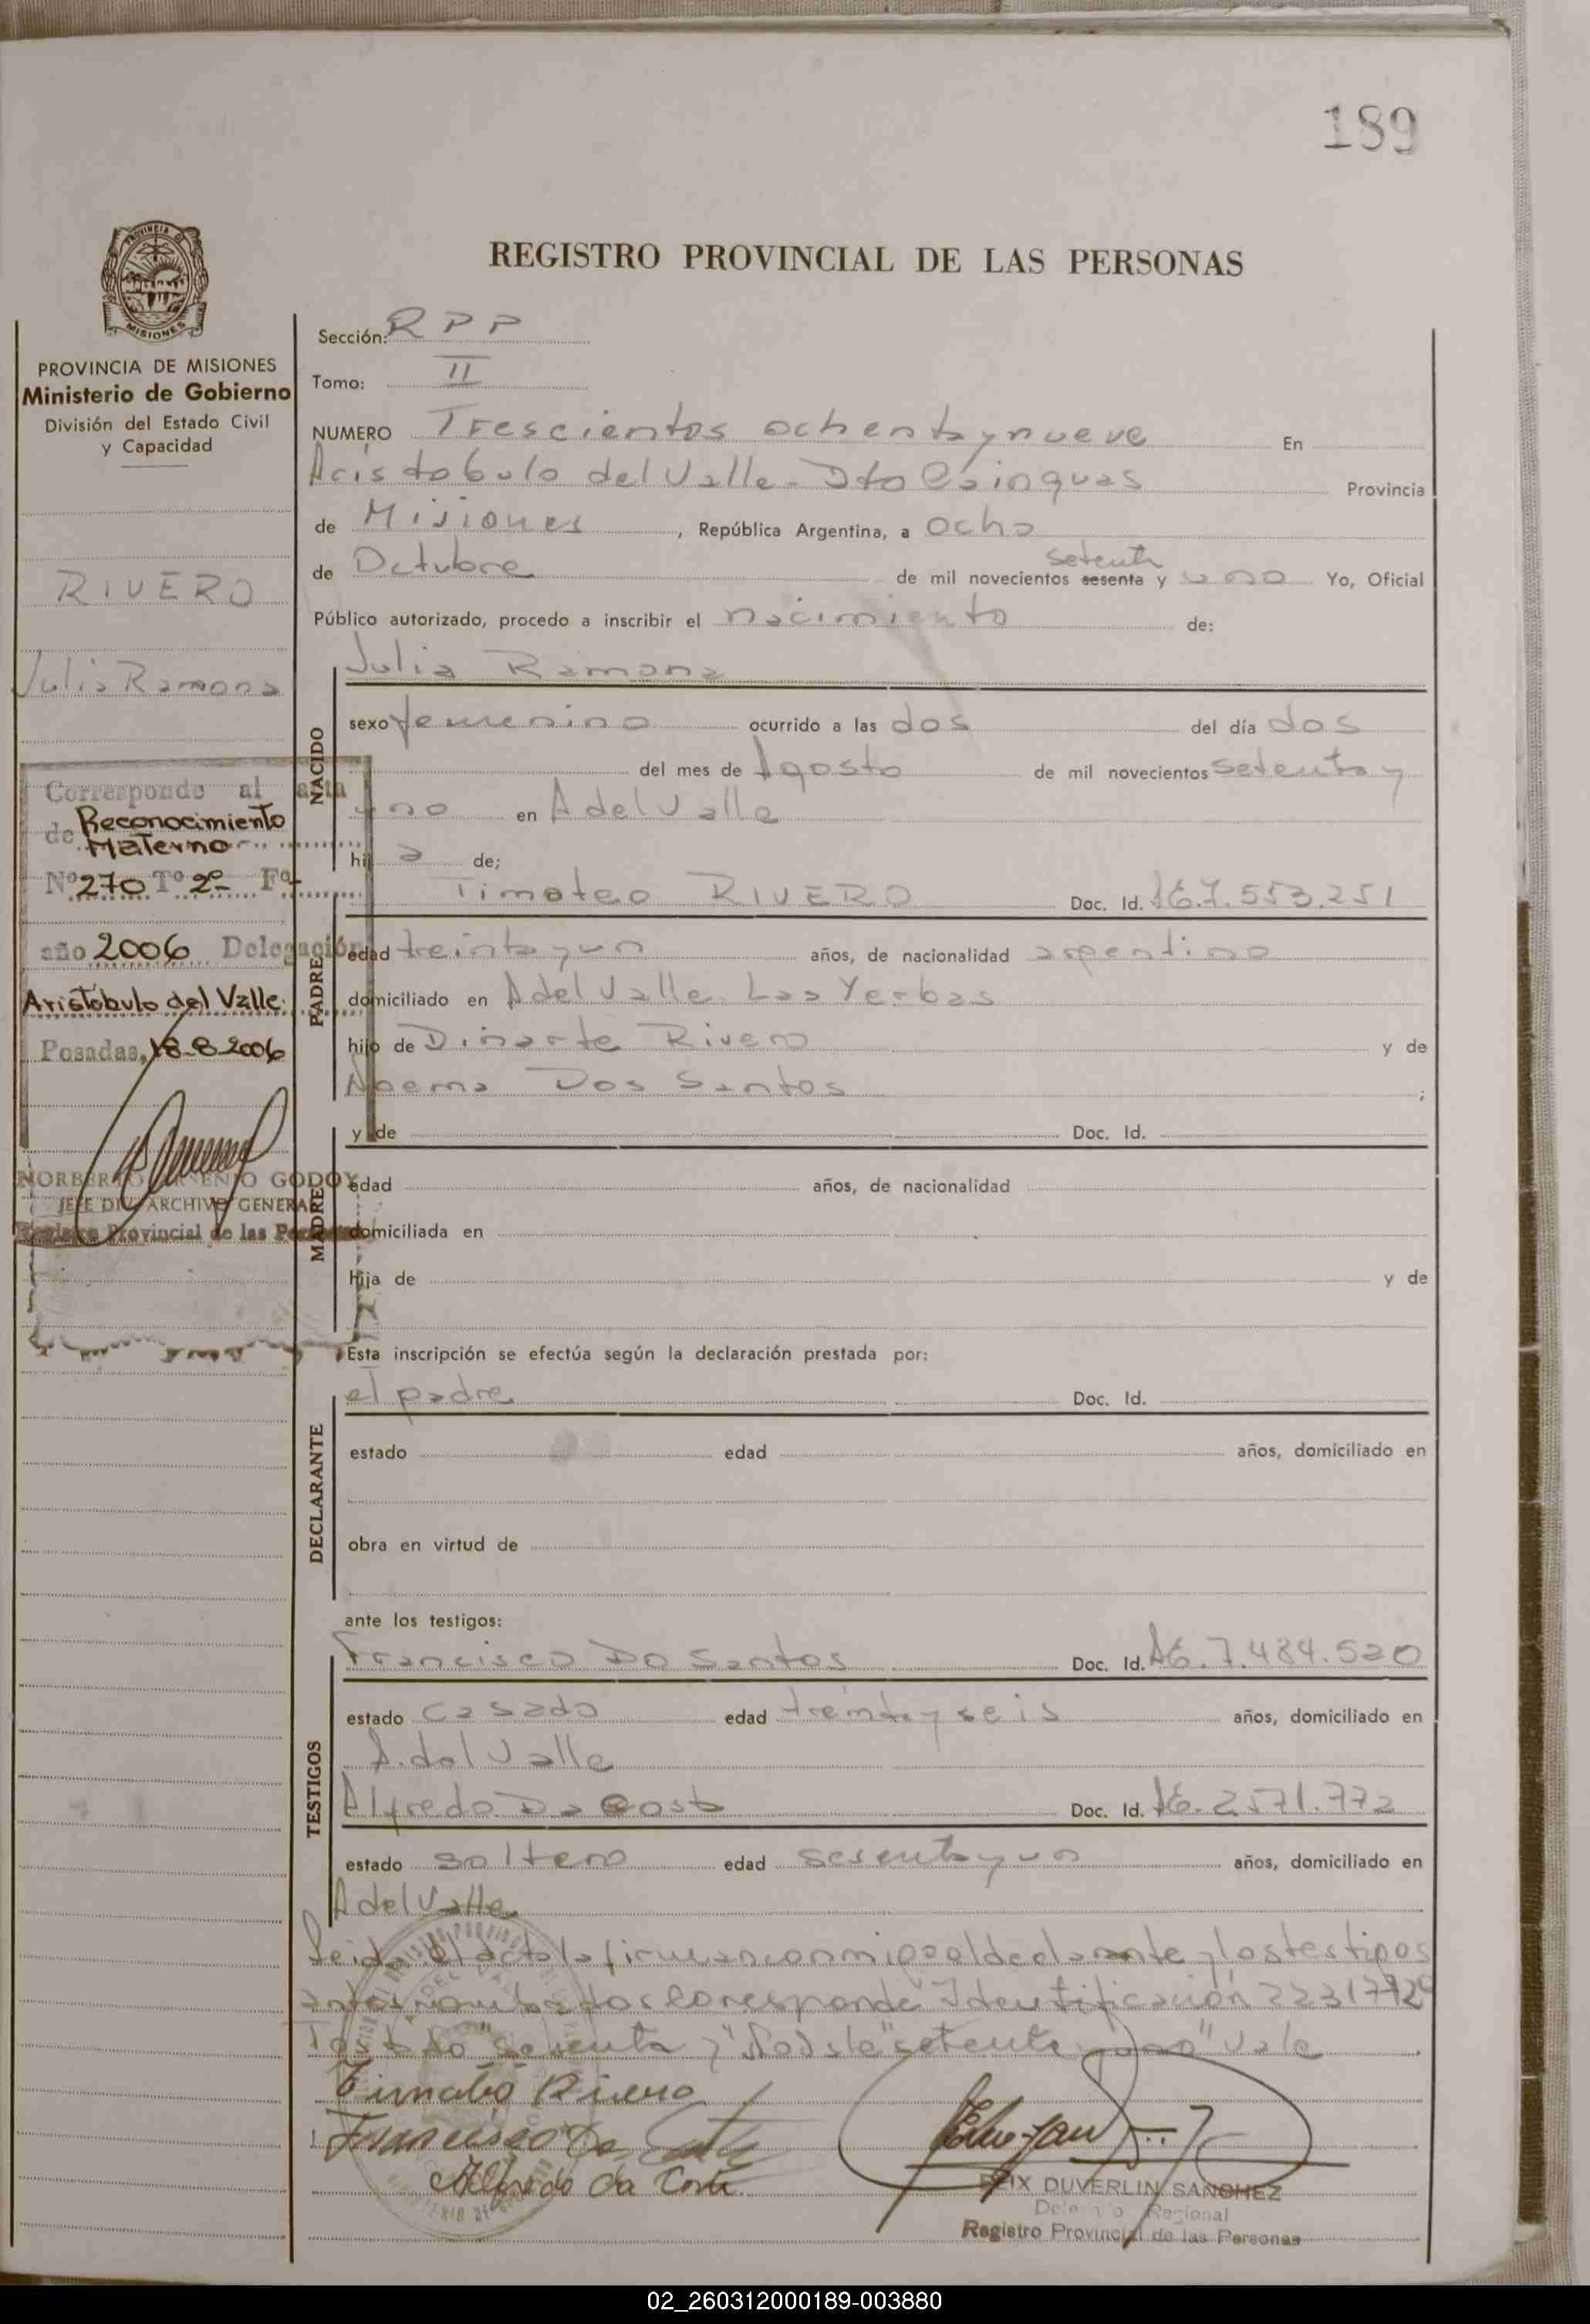 189
REGISTRO PROVINCIAL DE LAS PERSONAS
PROVINCIA DE MISIONES
Ministerio de Gobierno
División del Estado Civil
y Capacidad
RIVERO
Julia Ramona
Corresponde al acta
de Reconocimiento
Materno
Nº 270 Tº 2º Fº
año 2006 Delegación
Aristóbulo del Valle
Posadas, 18-8-2006
NORBERTO ARSENIO GODOY
JEFE DIV. ARCHIVO GENERAL
Registro Provincial de las Personas
Sección: RPP
Tomo: II
NUMERO Trescientos ochenta y nueve En
Aristobulo del Valle - Dto Cainguas Provincia
de Misiones, República Argentina, a ocho
setenta
de Octubre de mil novecientos sesenta y uno Yo, Oficial
Público autorizado, procedo a inscribir el nacimiento de:
NACIDO
Julia Ramona
sexo femenino ocurrido a las dos del día dos
del mes de Agosto de mil novecientos setenta y
uno en A del Valle
hij a de;
PADRE
Timoteo RIVERO Doc. Id. M6.7.553.251
edad treinta y un años, de nacionalidad argentino
domiciliado en A del Valle Las Yerbas
hijo de Dinarte Rivero y de
Noema Dos Santos ;
MADRE
y de Doc. Id.
edad años, de nacionalidad
domiciliada en
Hija de y de
Esta inscripción se efectúa según la declaración prestada por:
DECLARANTE
el padre Doc. Id.
estado edad años, domiciliado en
obra en virtud de
ante los testigos:
TESTIGOS
Francisco Do Santos Doc. Id. M6.7.484.520
estado casado edad treinta y seis años, domiciliado en
A. del Valle
Alfredo Da Costa Doc. Id. M6.2571.772
estado soltero edad sesenta y un años, domiciliado en
A del Valle
Leida el acta la firman conmigo el declarante y los testigos
antes nombrados Corresponde Identificación 22317720
Testado "sesenta" y setenta uno" Vale
Timoteo Rivero
Francisco Do
Alfredo da Costa
FELIX DUVERLIN SANCHEZ
Delegado Regional
Registro Provincial de las Personas
02_260312000189-003880